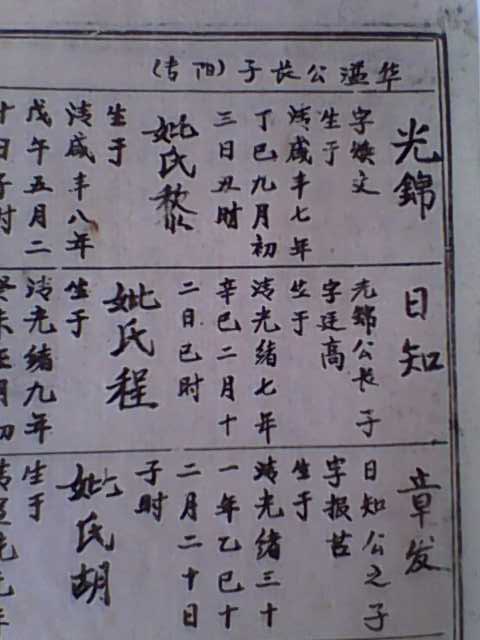 华溢公长子(阳吉)
光錦
字焕文
生于
清咸丰七年
丁巳九月初
三日丑时
妣氏黎
生于
清咸丰八年
戊午五月二
十日子时
日知
光錦公长子
字廷高
生于
清光绪七年
辛巳二月十
二日巳时
妣氏程
生于
清光绪九年
癸未五月初
章发
日知公之子
字报苔
生于
清光绪三十
一年乙巳十
二月二十日
子时
妣氏胡
生于